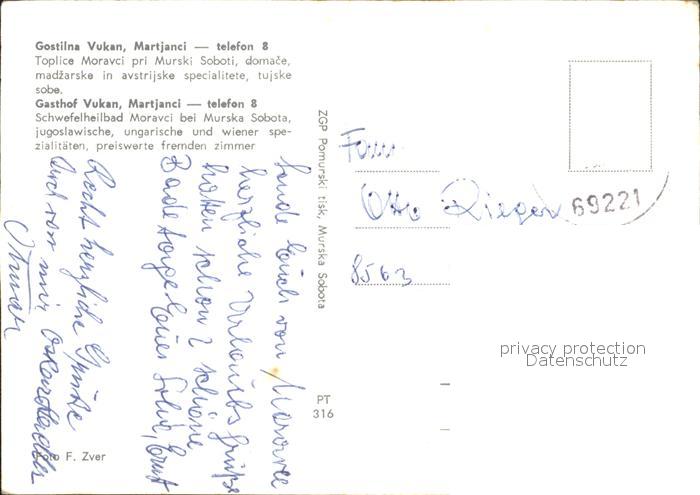 Gostilna Vukan, Martjanci — telefon 8
Toplice Moravci pri Murski Soboti, domače,
madžarske in avstrijske specialitete, tujske
sobe.
Gasthof Vukan, Martjanci — telefon 8
Schwefelheilbad Moravci bei Murska Sobota,
jugoslawische, ungarische und wiener spe-
zialitäten, preiswerte fremden zimmer
Sende Euch von
herzliche Urlaubsgrüße
hatten schon 2 schöne
Badetage Euer
Recht herzliche Grüße
auch von mir
Foto F. Zver
ZGP Pomurski tisk, Murska Sobota
PT
316
Fam.
Otto Rieger
8563
69221
privacy protection
Datenschutz